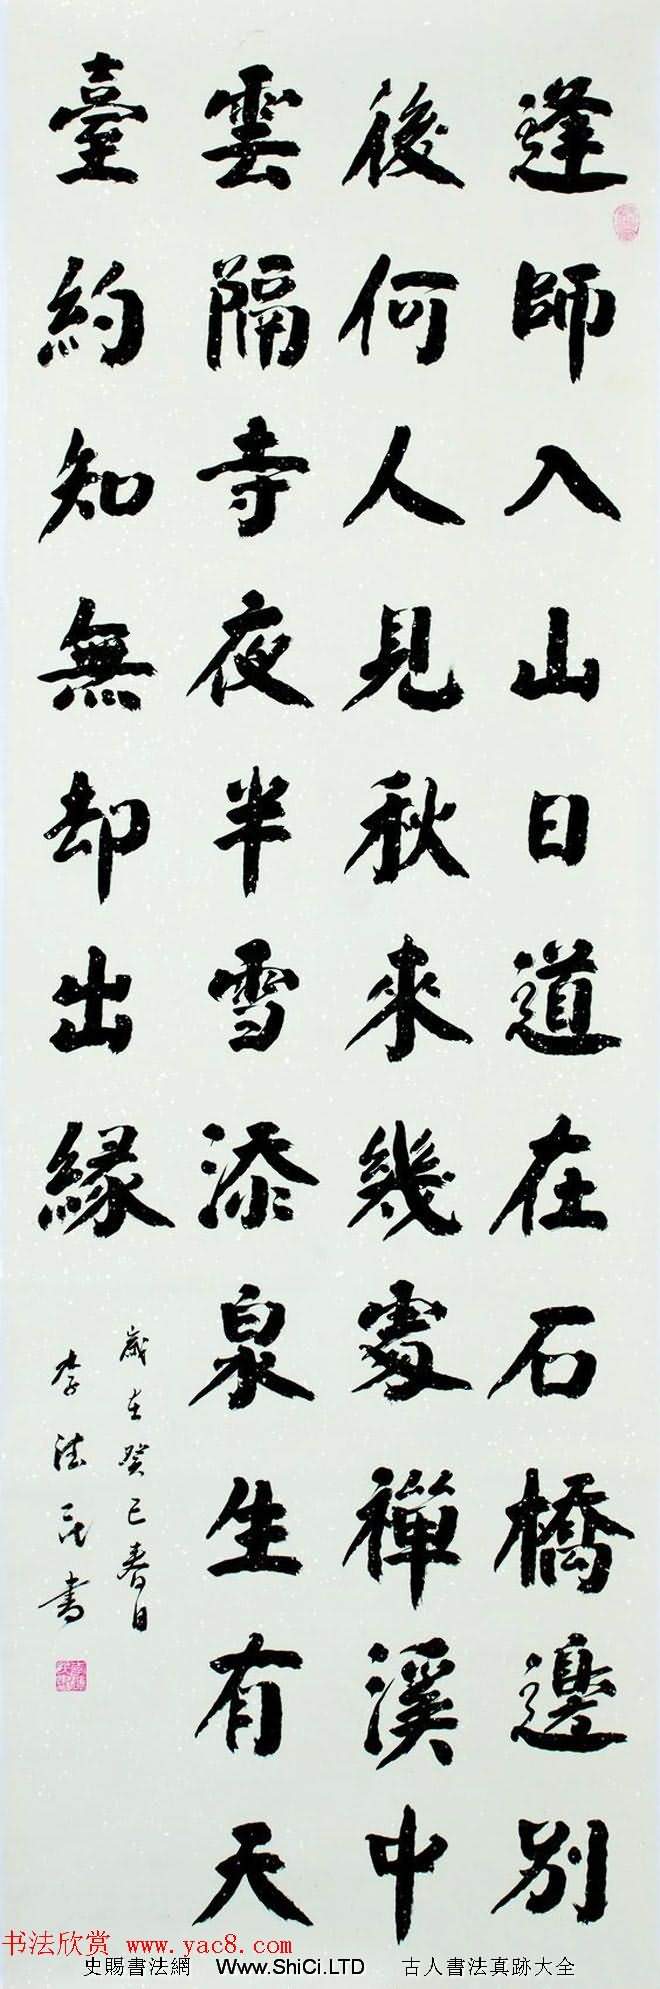 逢師入山日道在石橋邊別
後何人見秋來幾處禪溪中
雲隔寺夜半雪添泉生有天
臺約知無却出緣
歲在癸巳春日
李法書
书法欣赏 www.yac8.com
史賜書法網 Www.ShiCi.LTD 古人書法真跡大全